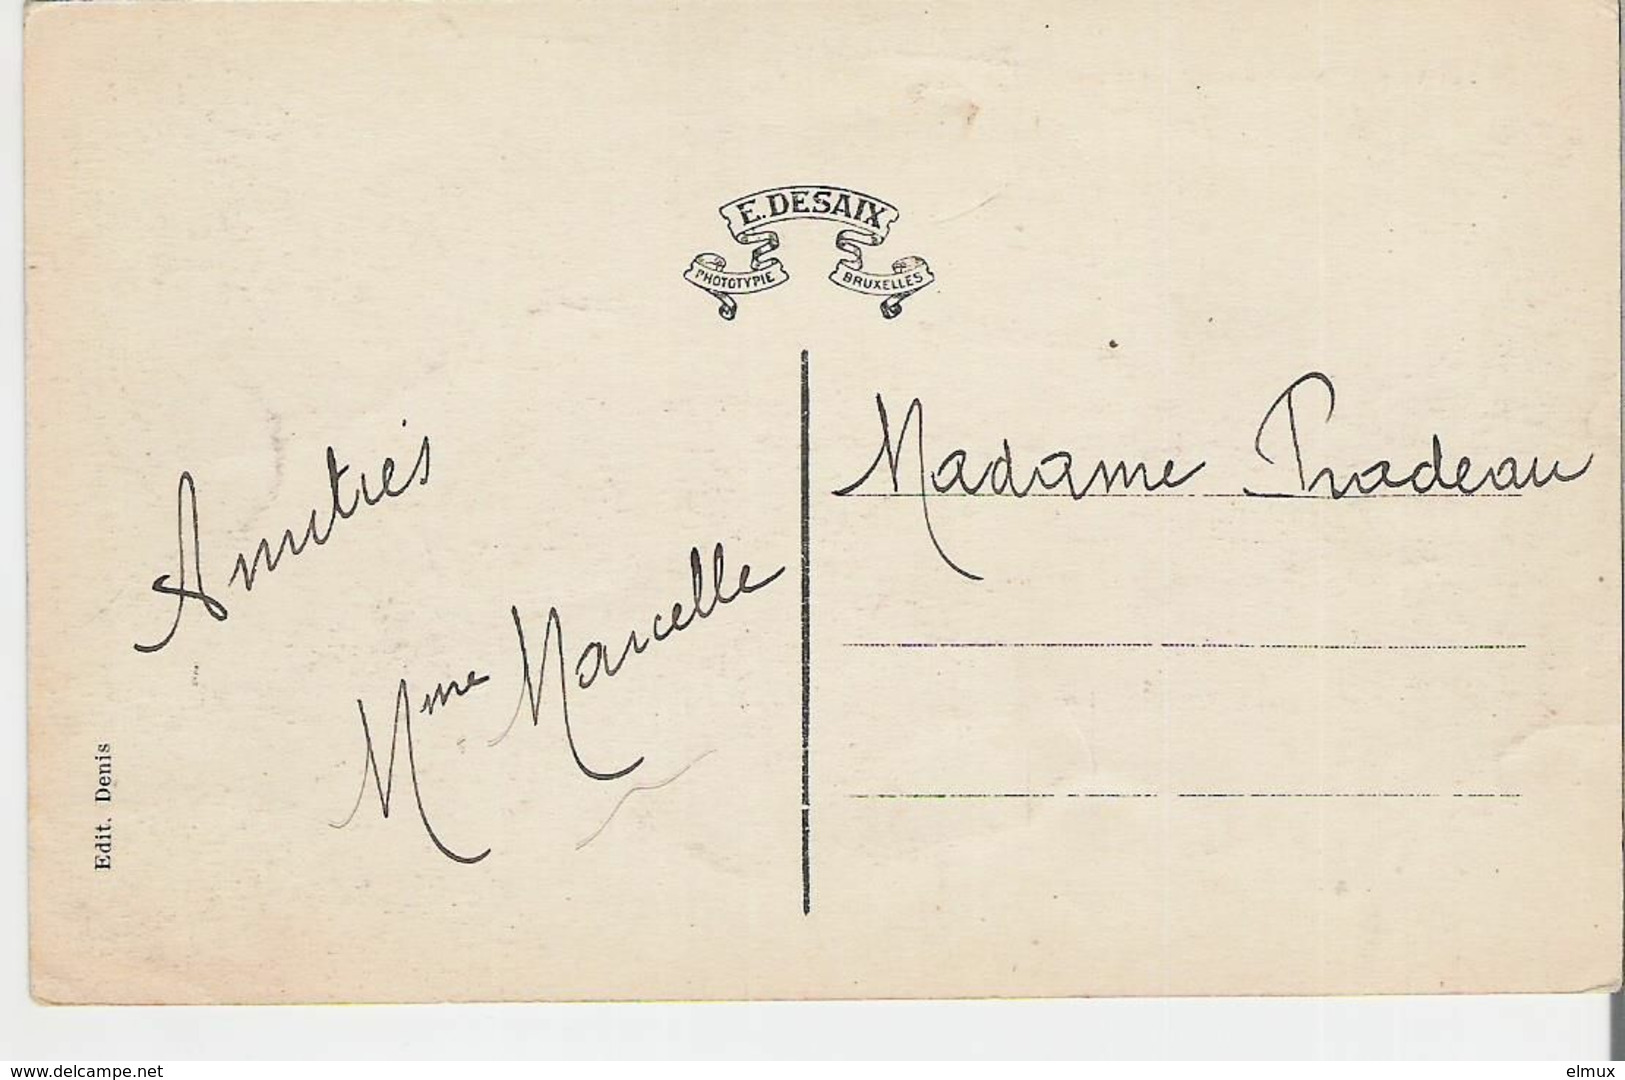 E. DESAIX
PHOTOTYPIE BRUXELLES
Amitiés
Mme Marcelle
Madame Pradeau
Edit. Denis
www.delcampe.net
elmux